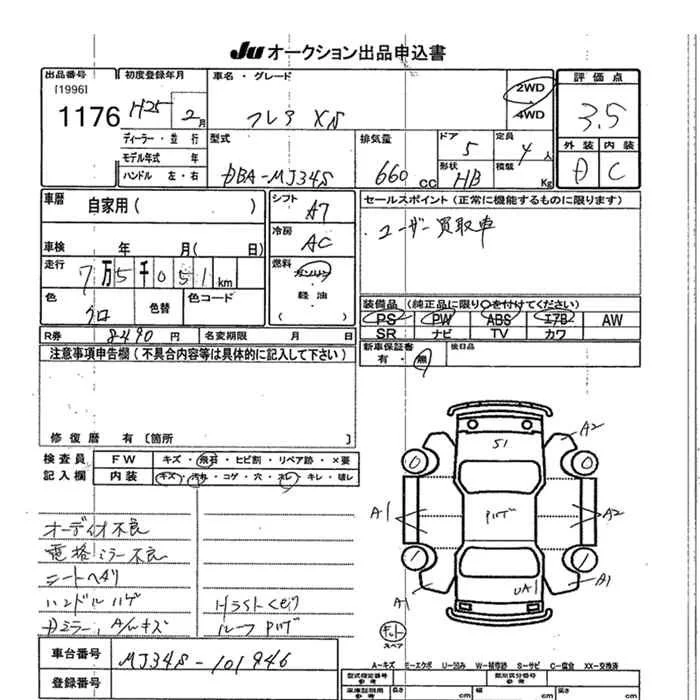 JU オークション出品申込書
出品番号 初度登録年月 車名・グレード 評価点
[1996] 1176 H25 2月 フレア XS 2WD 4WD 3.5
ディーラー・並行 型式 排気量 ドア 定員 外装 内装
モデル年式 年 5 4人
ハンドル 左・右 DBA-MJ34S 660cc 形状 HB 積載 Kg D C
車歴 自家用( ) シフト A7 セールスポイント(正常に機能するものに限ります)
冷房 AC ユーザー買取車
車検 年 月( 日)
走行 7万5千051km 燃料 ガソリン
軽油
( )
色 クロ 色替 色コード 装備品(純正品に限り○を付けてください)
PS PW ABS エアB AW
R券 8490円 名変期限 月 日 SR ナビ TV カワ
注意事項申告欄(不具合内容等は具体的に記入して下さい) 新車保証書 後日品
有・無
修復歴 有 [箇所 ]
検査員 FW キズ・飛石・ヒビ割・リペア跡・×要
記入欄 内装 キズ・汚れ・コゲ・穴・スレ・キレ・破レ
A2
S1
A1 A2
A1 UA1 A1
オーディオ不良
電格ミラー不良
シートヘタリ
ハンドルハゲ
ヘッドライトくもり
Dミラー,A/Wキズ ルーフPハゲ
キット
スペア
車台番号 MJ34S-101946
登録番号
A-キズ E-エクボ U-凹み W-補修跡 S-サビ C-腐食 XX-交換済
型式指定番号 参考 類別区分番号 参考
車庫証明用 参考 長さ cm 幅 cm 高さ cm